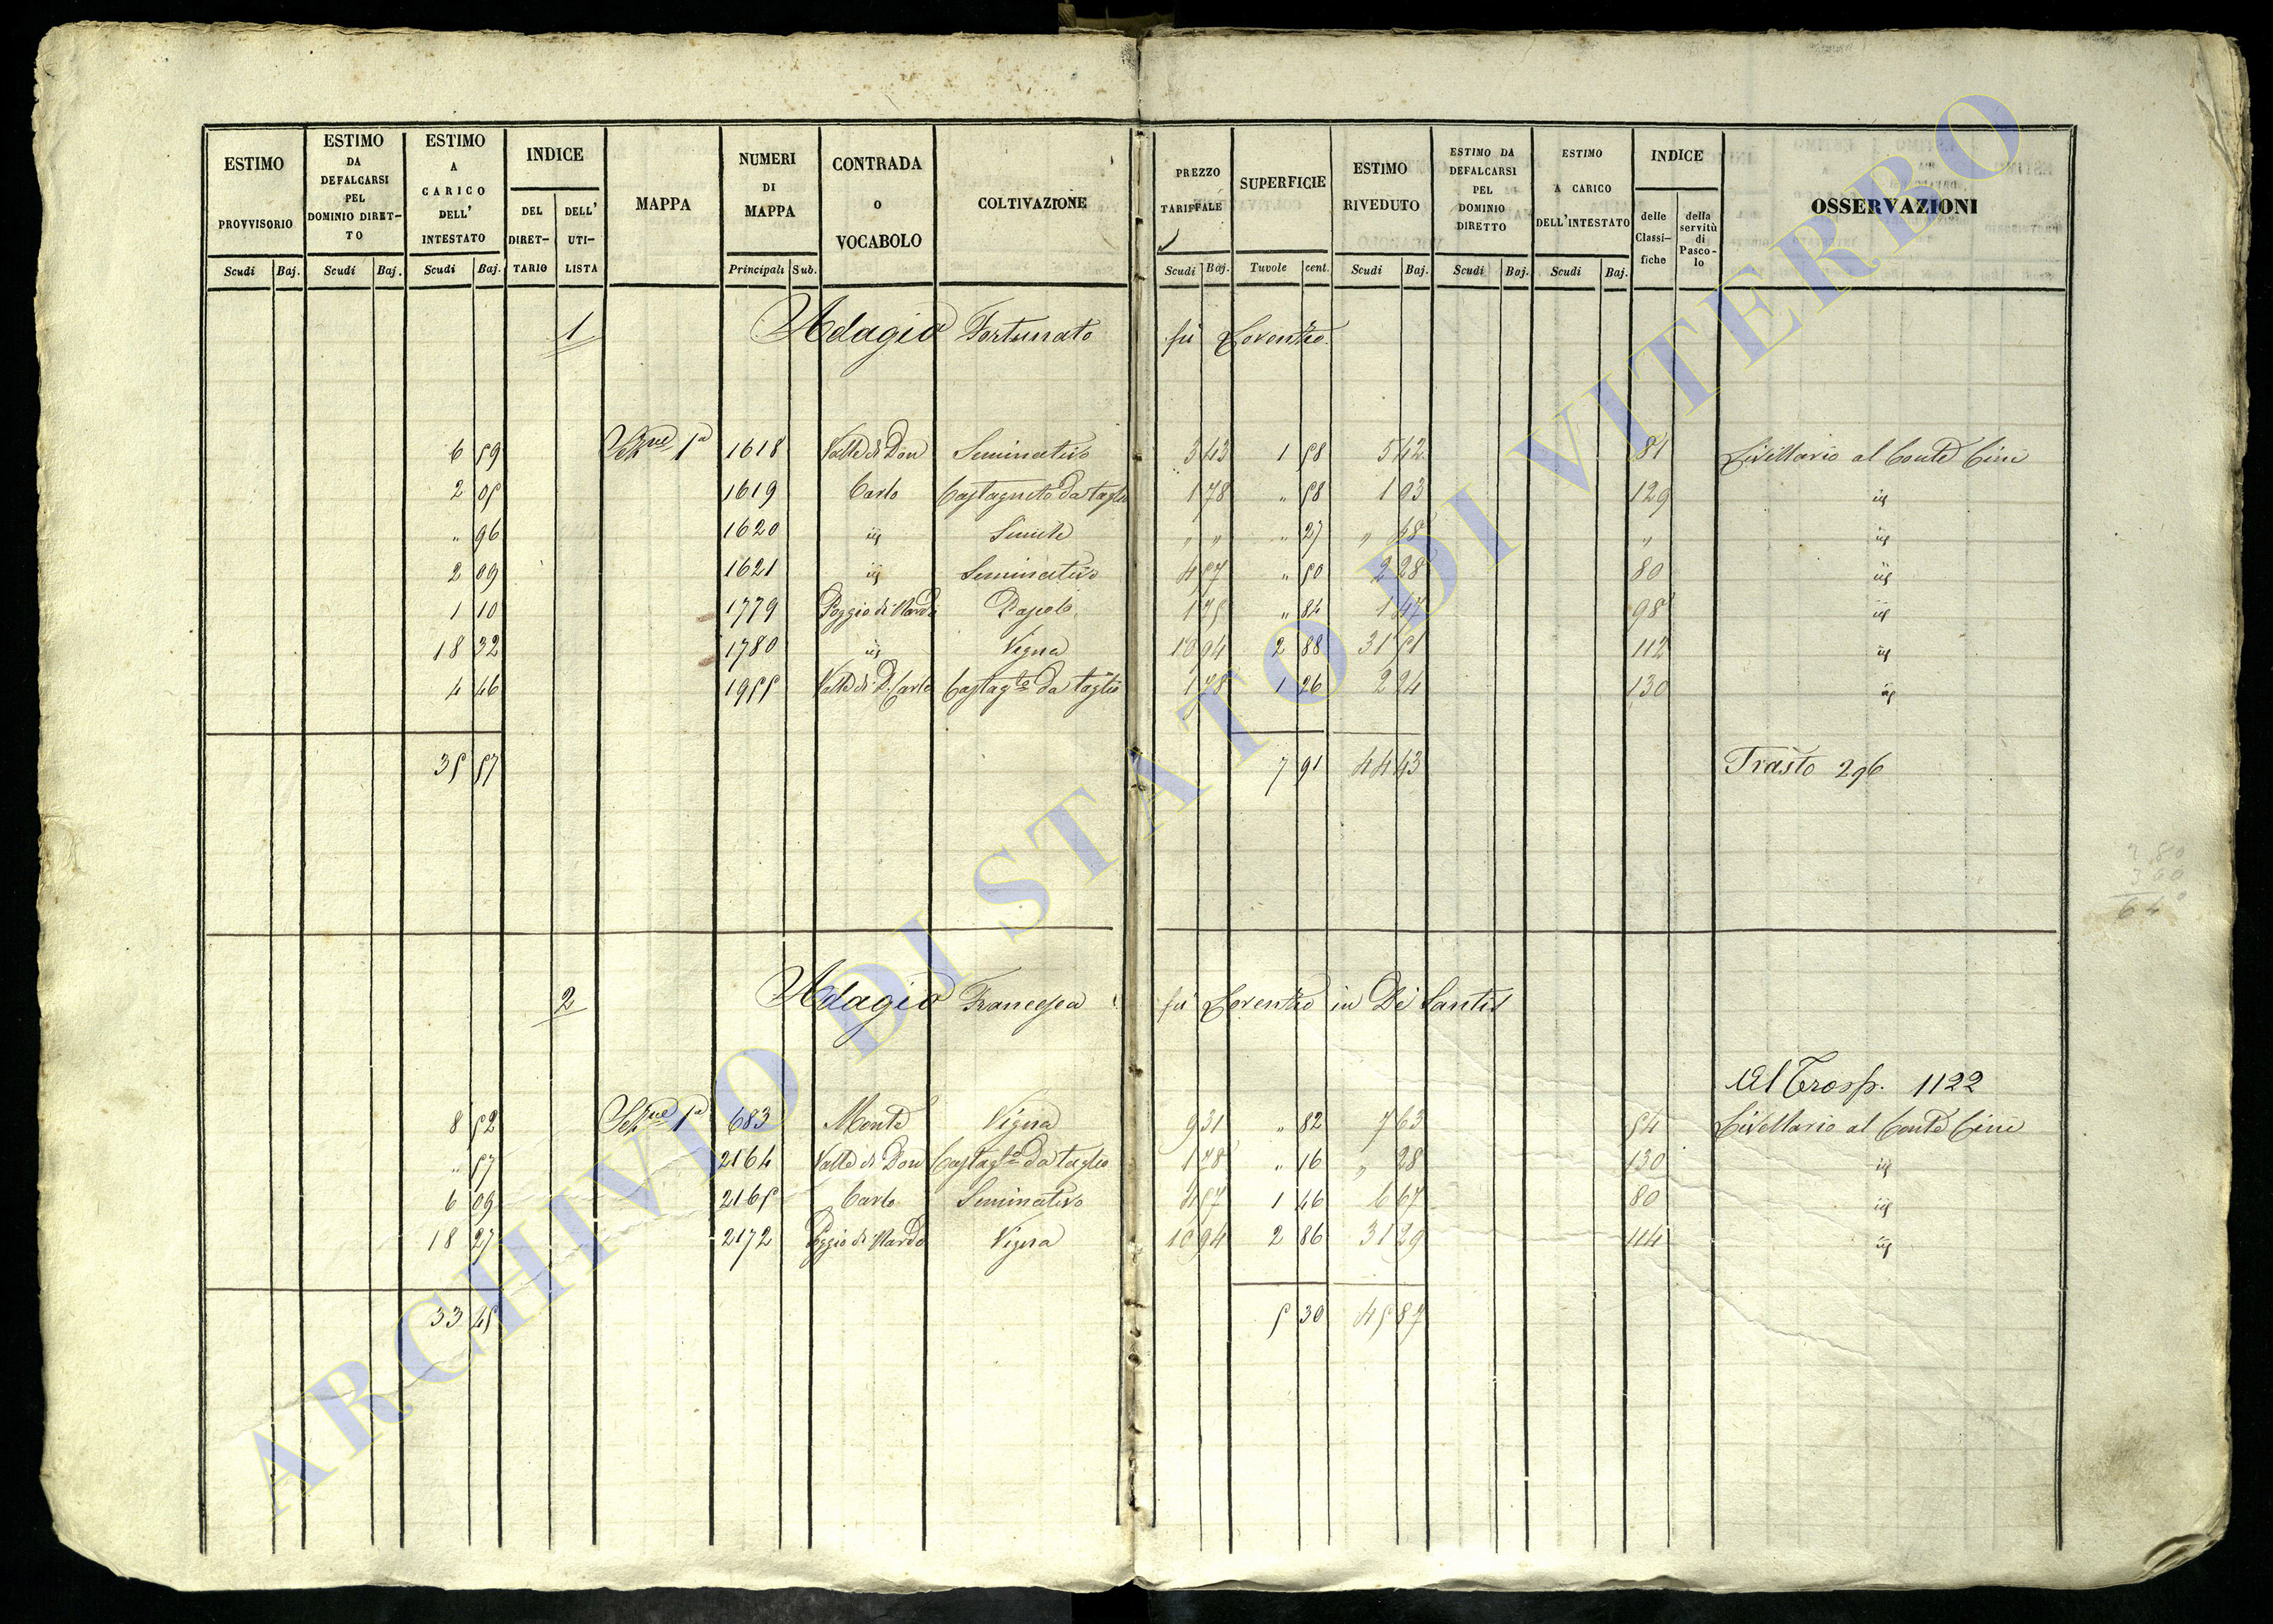 ESTIMO PROVVISORIO Scudi Baj.
ESTIMO DA DEFALCARSI PEL DOMINIO DIRET-TO Scudi Baj.
ESTIMO A CARICO DELL' INTESTATO Scudi Baj.
INDICE DEL DIRET-TARIO DELL' UTI-LISTA
MAPPA
NUMERI DI MAPPA Principali Sub.
CONTRADA o VOCABOLO
COLTIVAZIONE
PREZZO TARIFFALE Scudi Baj.
SUPERFICIE Tavole cent.
ESTIMO RIVEDUTO Scudi Baj.
ESTIMO DA DEFALCARSI PEL DOMINIO DIRETTO Scudi Baj.
ESTIMO A CARICO DELL'INTESTATO Scudi Baj.
INDICE delle Classi-fiche della servitù di Pasco-lo
OSSERVAZIONI
1 Adagio Fortunato fù Lorenzo
6 59 Sez.ne 1a 1618 Valle di Don Seminativo 3 43 1 58 5 42 81 Livellario al Conte
2 05 1619 Carlo Castagneto da taglio 1 78 " 58 1 03 129
" 96 1620 Simile " " " 27 " 48 "
2 09 1621 Seminativo 4 57 " 50 2 28 80
1 10 1779 Poggio di Nardo 1 75 " 84 1 47 98
18 32 1780 Vigna 10 94 2 88 31 51 112
4 46 1955 Valle di D. Carlo Castag.to da taglio 1 78 1 26 2 24 130
35 57 7 91 44 43 Trasto 296
280
360
640
2 Adagio Francesca fù Lorenzo in De Santis
Al Trosp. 1122
8 52 Sez.ne 1a 683 Monte Vigna 9 31 " 82 7 63 54 Livellario al Conte
" 57 2164 Valle di Don Castag.to da taglio 1 78 " 16 " 28 130
6 09 2165 Carlo Seminativo 4 57 1 46 6 67 80
18 27 2172 Poggio di Nardo Vigna 10 94 2 86 31 29 114
33 45 5 30 45 87
ARCHIVIO DI STATO DI VITERBO